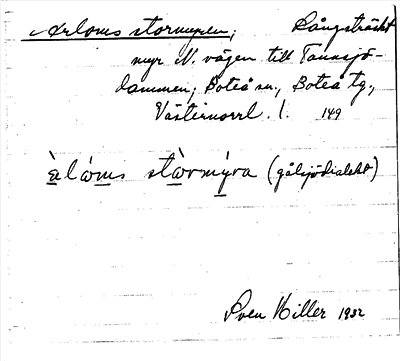 Arloms stormyren; Långsträckt
myr N. vägen till Tannsjö-
dammen; Boteå sn., Boteå tg.,
Västernorrl. l. 149
àlóms stòrmýra (gålsjödialekt)
Sven Hiller 1932